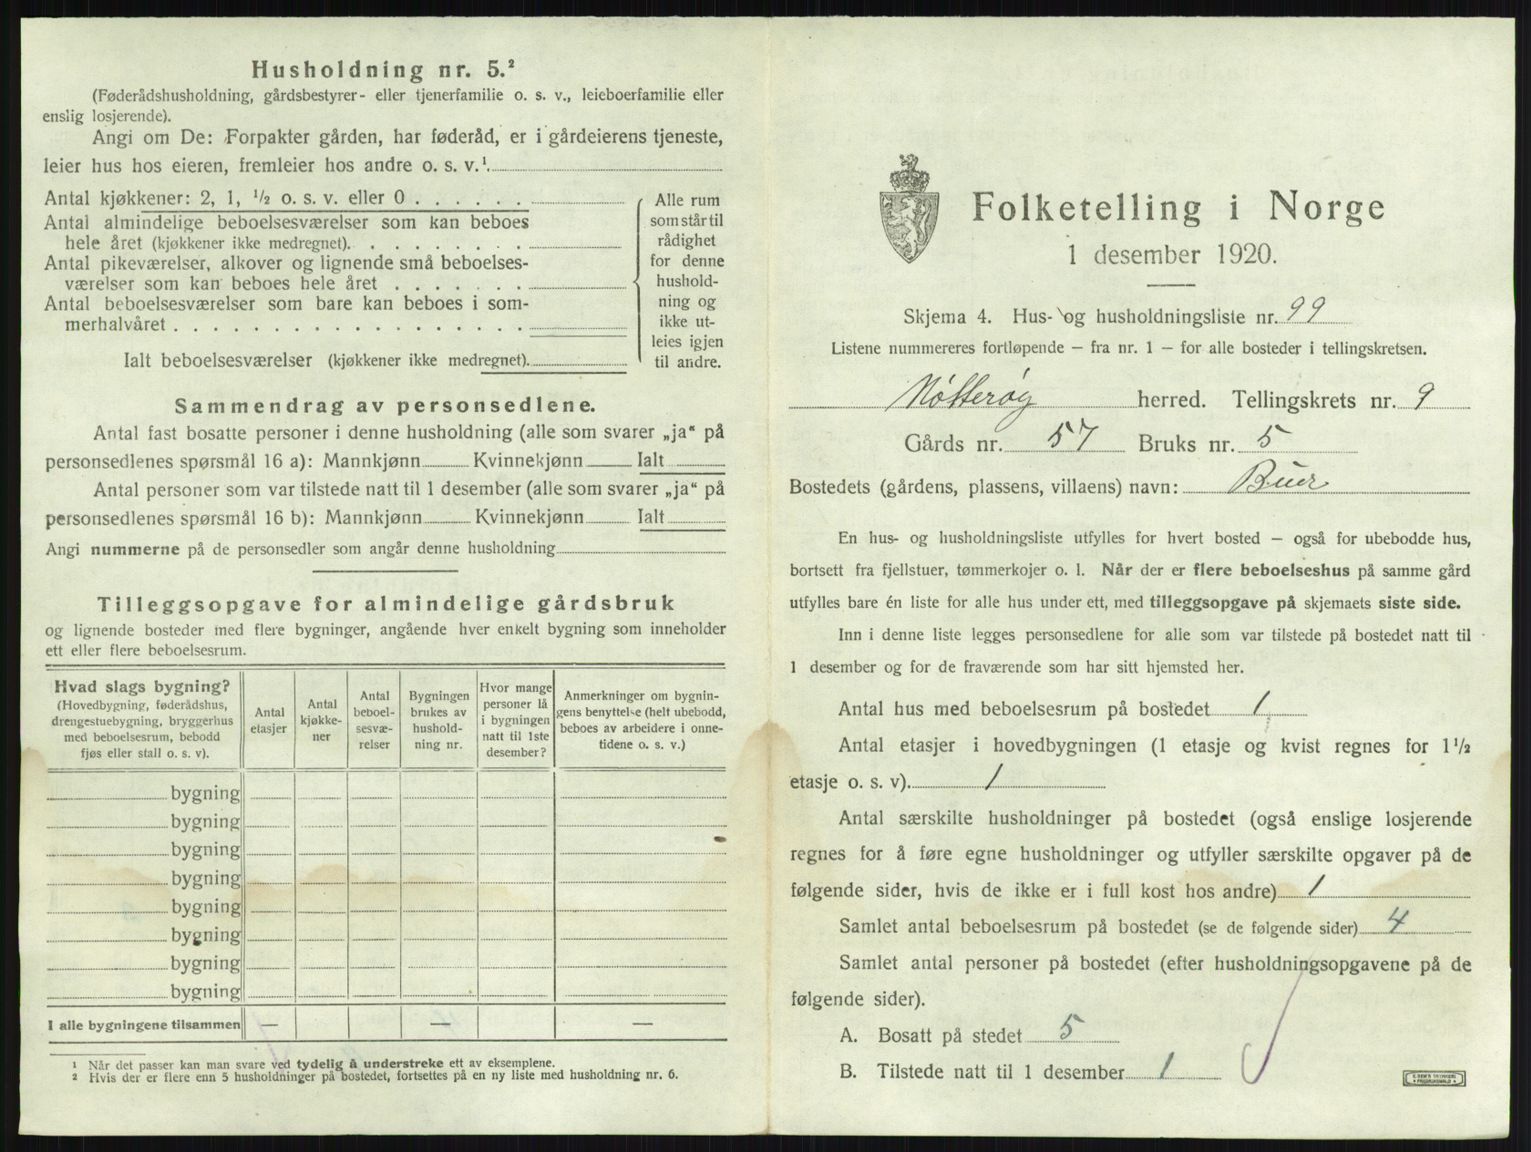 Husholdning nr. 5.²
(Føderådshusholdning, gårdsbestyrer- eller tjenerfamilie o. s. v., leieboerfamilie eller
enslig losjerende).
Angi om De: Forpakter gården, har føderåd, er i gårdeierens tjeneste,
leier hus hos eieren, fremleier hos andre o. s. v.¹.
Antal kjøkkener: 2, 1, ½ o. s. v. eller 0 . . . . . .
Antal almindelige beboelsesværelser som kan beboes
hele året (kjøkkener ikke medregnet). . . . . . . .
Antal pikeværelser, alkover og lignende små beboelses-
værelser som kan beboes hele året . . . . . . .
Antal beboelsesværelser som bare kan beboes i som-
merhalvåret . . . . . . . . . . . . . . . . .
Ialt beboelsesværelser (kjøkkener ikke medregnet).
Alle rum
som står til
rådighet
for denne
hushold-
ning og
ikke ut-
leies igjen
til andre.
Sammendrag av personsedlene.
Antal fast bosatte personer i denne husholdning (alle som svarer „ja“ på
personsedlenes spørsmål 16 a): Mannkjønn Kvinnekjønn Ialt
Antal personer som var tilstede natt til 1 desember (alle som svarer „ja“ på
personsedlenes spørsmål 16 b): Mannkjønn Kvinnekjønn Ialt
Angi nummerne på de personsedler som angår denne husholdning
Tilleggsopgave for almindelige gårdsbruk
og lignende bosteder med flere bygninger, angående hver enkelt bygning som inneholder
ett eller flere beboelsesrum.
Hvad slags bygning?
(Hovedbygning, føderådshus,
drengestuebygning, bryggerhus
med beboelsesrum, bebodd
fjøs eller stall o. s. v).
Antal
etasjer
Antal
kjøkke-
ner
Antal
beboel-
sesvæ-
relser
Bygningen
brukes av
hushold-
ning nr.
Hvor mange
personer lå
i bygningen
natt til 1ste
desember?
Anmerkninger om bygnin-
gens benyttelse (helt ubebodd,
beboes av arbeidere i onne-
tidene o. s. v.)
bygning
bygning
bygning
bygning
bygning
bygning
bygning
bygning
I alle bygningene tilsammen — — —
¹ Når det passer kan man svare ved tydelig å understreke ett av eksemplene.
² Hvis der er flere enn 5 husholdninger på bostedet, fortsettes på en ny liste med husholdning nr. 6.
Folketelling i Norge
1 desember 1920.
Skjema 4. Hus- og husholdningsliste nr. 99
Listene nummereres fortløpende — fra nr. 1 — for alle bosteder i tellingskretsen.
Nøtterøy herred. Tellingskrets nr. 9
Gårds nr. 57 Bruks nr. 5
Bostedets (gårdens, plassens, villaens) navn: Buer
En hus- og husholdningsliste utfylles for hvert bosted — også for ubebodde hus,
bortsett fra fjellstuer, tømmerkojer o. l. Når der er flere beboelseshus på samme gård
utfylles bare én liste for alle hus under ett, med tilleggsopgave på skjemaets siste side.
Inn i denne liste legges personsedlene for alle som var tilstede på bostedet natt til
1 desember og for de fraværende som har sitt hjemsted her.
Antal hus med beboelsesrum på bostedet 1
Antal etasjer i hovedbygningen (1 etasje og kvist regnes for 1½
etasje o. s. v). 1
Antal særskilte husholdninger på bostedet (også enslige losjerende
regnes for å føre egne husholdninger og utfyller særskilte opgaver på de
følgende sider, hvis de ikke er i full kost hos andre) 1
Samlet antal beboelsesrum på bostedet (se de følgende sider) 4
Samlet antal personer på bostedet (efter husholdningsopgavene på de
følgende sider).
A. Bosatt på stedet 5
B. Tilstede natt til 1 desember 1